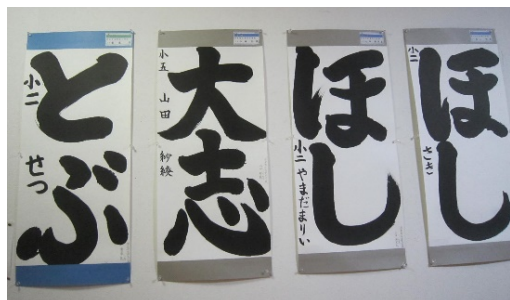 とぶ
小二
せつ
大志
小五 山田 紗綾
ほし
小二 やまだまりい
ほし
小二
さき